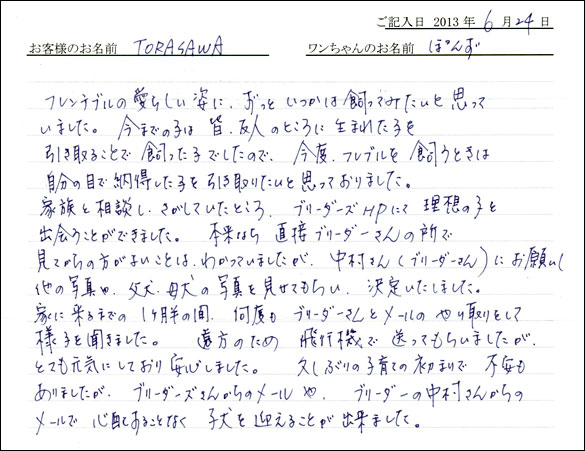 ご記入日 2013年 6月24日
お客様のお名前 TORASAWA ワンちゃんのお名前 ぽんず
フレンチブルの愛らしい姿に、ずっといつかは飼ってみたいと思って
いました。今までの子は皆、友人のところに生まれた子を
引き取ることで飼った子でしたので、今度、フレブルを飼うときは
自分の目で納得した子を引き取りたいと思っておりました。
家族と相談し、さがしていたところ、ブリーダーズHPにて理想の子と
出会うことができました。本来なら直接ブリーダーさんの所で
見てからの方がよいことは、わかっていましたが、中村さん(ブリーダーさん)にお願いし
他の写真や、父犬・母犬の写真を見せてもらい、決定いたしました。
家に来るまでの1ヶ月半の間、何度もブリーダーさんとメールのやり取りをして
様子を聞きました。遠方のため飛行機で送ってもらいましたが、
とても元気にしており安心しました。久しぶりの子育ての初まりで不安も
ありましたが、ブリーダーズさんからのメールや、ブリーダーの中村さんからの
メールで心配することなく子犬を迎えることが出来ました。